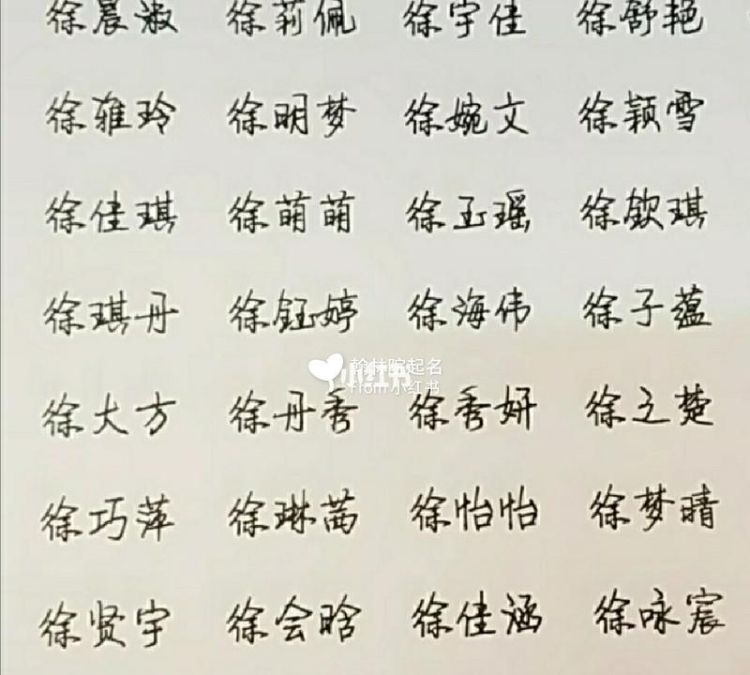 徐晨淑 徐莉佩 徐宇佳 徐舒艳
徐雅玲 徐明梦 徐婉文 徐颖雪
徐佳琪 徐萌萌 徐玉瑶 徐钦琪
徐琪丹 徐钰婷 徐海伟 徐子蕴
翰林院起名
小红书
From 小红书
徐大方 徐丹秀 徐秀妍 徐之楚
徐巧萍 徐琳茜 徐怡怡 徐梦晴
徐贤宇 徐会晗 徐佳涵 徐咏宸